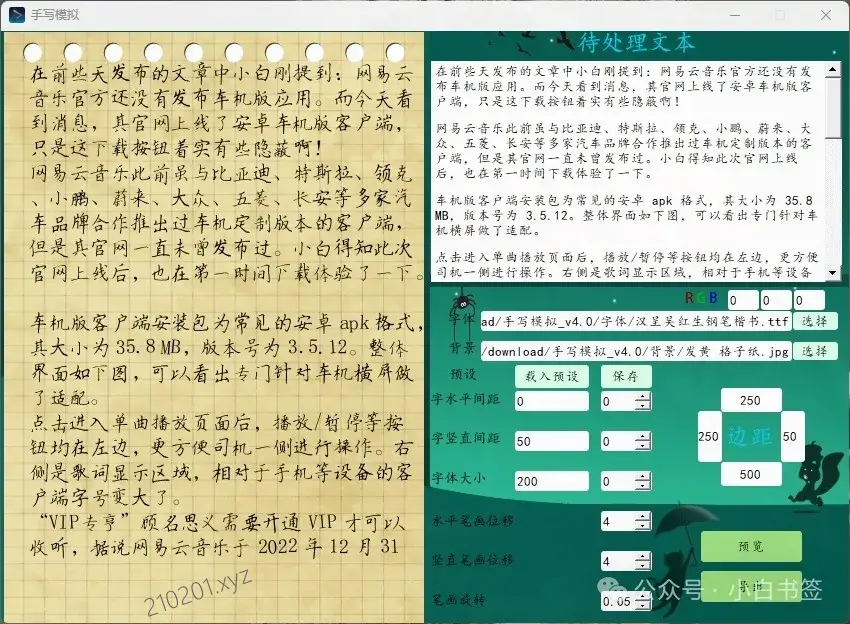 手写模拟
在前些天发布的文章中小白刚提到：网易云
音乐官方还没有发布车机版应用。而今天看
到消息，其官网上线了安卓车机版客户端，
只是这下载按钮着实有些隐蔽啊！
网易云音乐此前虽与比亚迪、特斯拉、领克
、小鹏、蔚来、大众、五菱、长安等多家汽
车品牌合作推出过车机定制版本的客户端，
但是其官网一直未曾发布过。小白得知此次
官网上线后，也在第一时间下载体验了一下。
车机版客户端安装包为常见的安卓 apk 格式，
其大小为 35.8 MB，版本号为 3.5.12。整体
界面如下图，可以看出专门针对车机横屏做
了适配。
点击进入单曲播放页面后，播放/暂停等按
钮均在左边，更方便司机一侧进行操作。右
侧是歌词显示区域，相对于手机等设备的客
户端字号变大了。
“VIP专享”顾名思义需要开通 VIP 才可以
收听，据说网易云音乐于 2022 年 12 月 31
210201.xyz
待处理文本
在前些天发布的文章中小白刚提到：网易云音乐官方还没有发
布车机版应用。而今天看到消息，其官网上线了安卓车机版客
户端，只是这下载按钮着实有些隐蔽啊！
网易云音乐此前虽与比亚迪、特斯拉、领克、小鹏、蔚来、大
众、五菱、长安等多家汽车品牌合作推出过车机定制版本的客
户端，但是其官网一直未曾发布过。小白得知此次官网上线
后，也在第一时间下载体验了一下。
车机版客户端安装包为常见的安卓 apk 格式，其大小为 35.8
MB，版本号为 3.5.12。整体界面如下图，可以看出专门针对车
机横屏做了适配。
点击进入单曲播放页面后，播放/暂停等按钮均在左边，更方便
司机一侧进行操作。右侧是歌词显示区域，相对于手机等设备
RGB 0 0 0
字体 ad/手写模拟_v4.0/字体/汉呈吴红生钢笔楷书.ttf 选择
背景 /download/手写模拟_v4.0/背景/发黄 格子纸.jpg 选择
预设 载入预设 保存
字水平间距 0 0
字竖直间距 50 0
字体大小 200 0
250
250 边距 50
500
水平笔画位移 4
竖直笔画位移 4
笔画旋转 0.05
预览
导出
公众号 · 小白书签